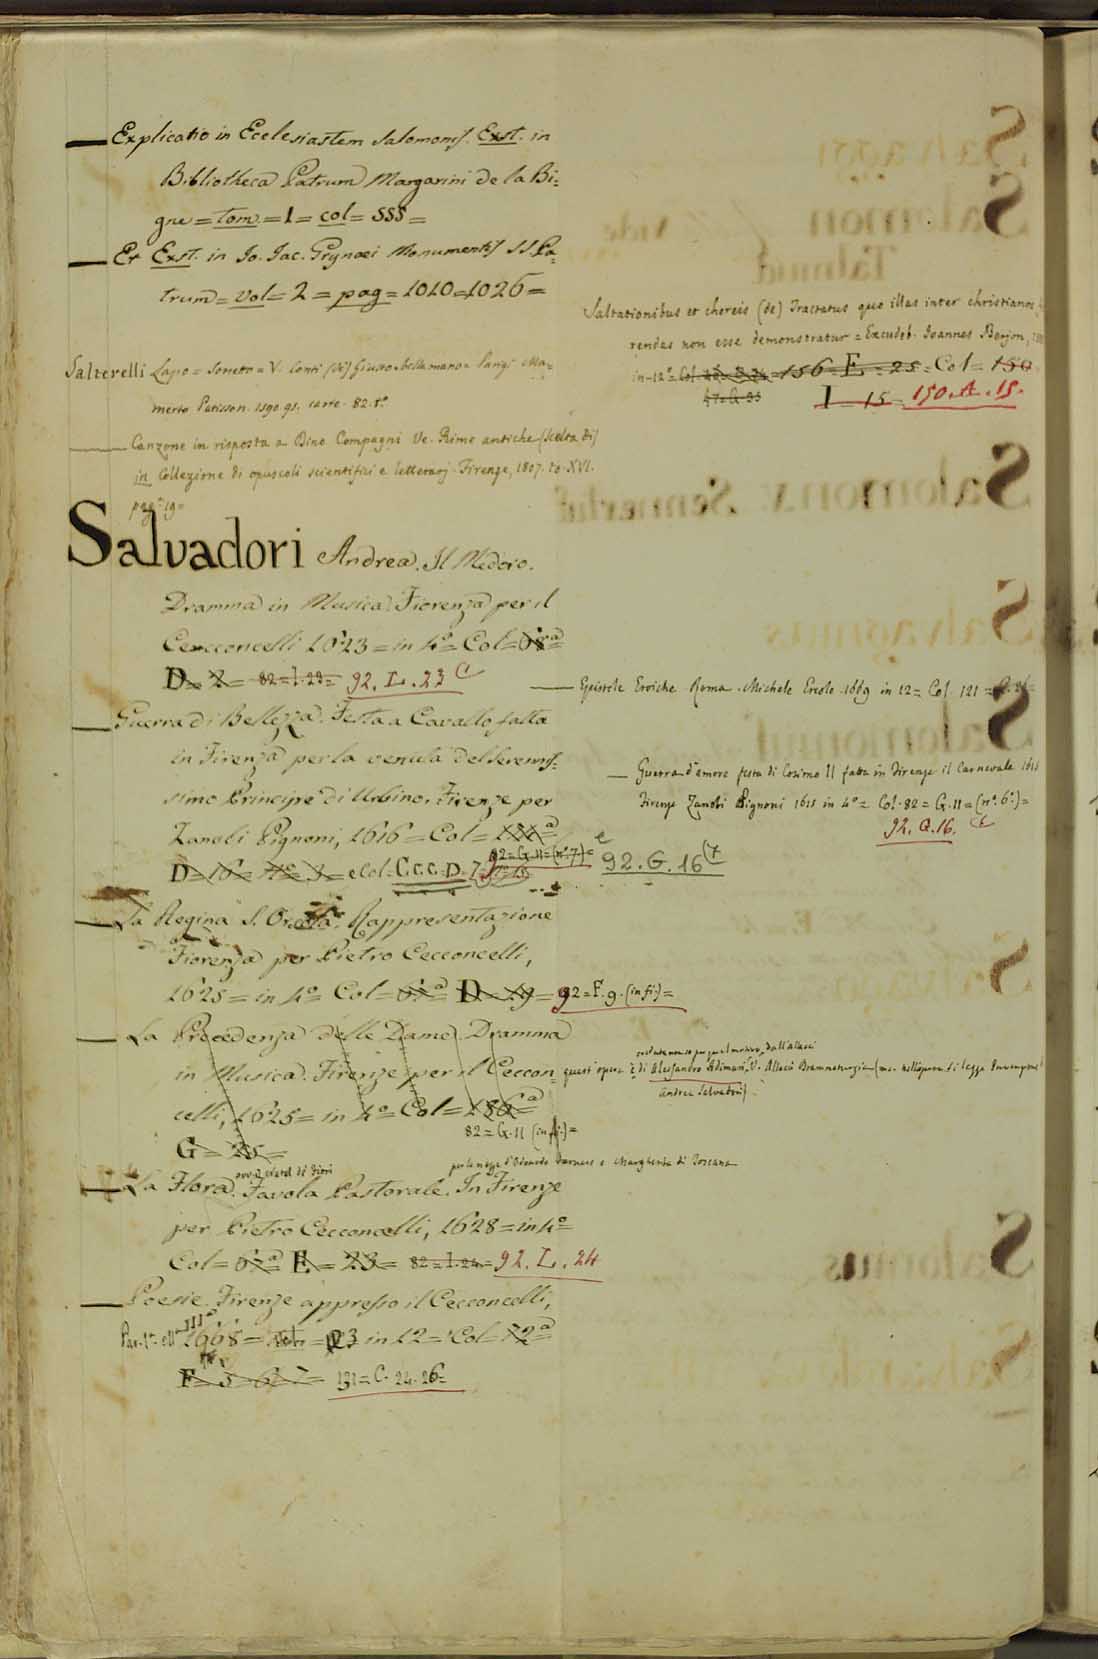 Explicatio in Ecclesiastem Salomonis. Exst. in
Bibliotheca Patrum Margarini de la Bi=
gne = tom = 1 = col = 555 =
Et Exst. in Jo. Jac. Grynaei Monumentis SS Pa=
trum = vol = 2 = pag = 1010 = 1026 =
Salterelli Lapo = Sonetto = V. Conti (de) Giusto = bella mano = Parigi Ma=
merto Patisson. 1590. 91. carte. 82. t.º
Canzone in risposta a Dino Compagni Ve. Rime antiche (scelta di)
in Collezione di opuscoli scientifici e letterarj. Firenze, 1807. to. XVI.
pag. 19 =
Salvadori Andrea. Il Medoro.
Dramma in Musica. Fiorenza per il
Cecconcelli 1623 = in 4º = Col =
D = 2 = 82 = I. 23 = 92. L. 23
Guerra di Bellezza. Festa a Cavallo fatta
in Firenza per la venuta del Serenis=
simo Principe di Urbino. Firenze per
Zanobi Pignoni, 1616 = Col =
82 = G. 11 = (nº 7) =
D = 16 = Col = C.c.c. D. 7 92. G. 16
La Regina S. Orsola. Rappresentazione
Fiorenza per Pietro Cecconcelli,
1625 = in 4º = Col = D = 19 = 92 = F. 9. (in fi.) =
La Precedenza delle Dame. Dramma
in Musica. Firenze per il Ceccon=
celli, 1625 = in 4º = Col = 186ª =
82 = G. 11 (in fi.) =
G = 25 =
La Flora. Favola Pastorale. In Firenze
per le nozze d'Odoardo Farnese e Margherita di Toscana
per Pietro Cecconcelli, 1628 = in 4º =
Col = E = 23 = 82 = I. 24 = 92. L. 24
Poesie. Firenze appresso il Cecconcelli,
1668 = in 12 = Col = 72ª =
F = 5 6 7 = 131 = C. 24. 26 =
Saltationibus et choreis (de) Tractatus quo illas inter christianos
rendas non esse demonstratur = Excudeb. Joannes Berjon,
in - 12º = Col 156 = E = 25 = Col = 150
47 = G = 35 I = 15 = 150. A. 15.
Epistole Eroiche. Roma. Michele Ercole. 1669 in 12 = Col. 121 =
Guerra d'amore festa di Cosimo II fatta in Firenze il Carnevale 1615
Firenze Zanobi Pignoni 1615 in 4º = Col. 82 = G. 11 = (nº 6º) =
92. G. 16.
quest'opera è di Alessandro Adimari, V. Allacci Drammaturgia
Andrea Salvadori)